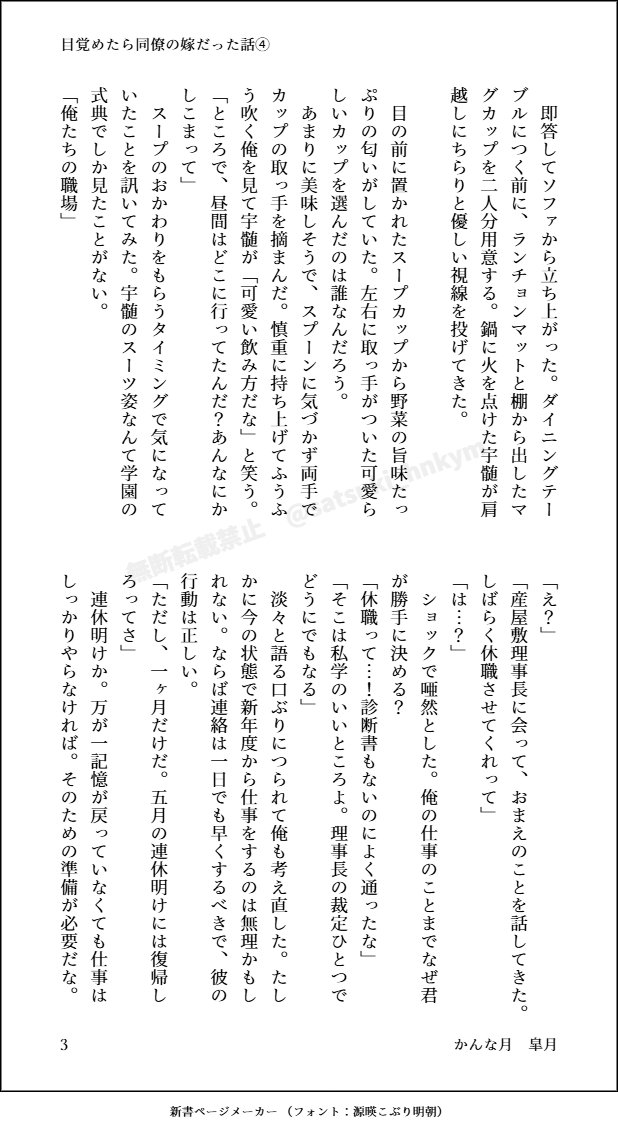 目覚めたら同僚の嫁だった話④
　即答してソファから立ち上がった。ダイニングテー
ブルにつく前に、ランチョンマットと棚から出したマ
グカップを二人分用意する。鍋に火を点けた宇髄が肩
越しにちらりと優しい視線を投げてきた。
　目の前に置かれたスープカップから野菜の旨味たっ
ぷりの匂いがしていた。左右に取っ手がついた可愛ら
しいカップを選んだのは誰なんだろう。
　あまりに美味しそうで、スプーンに気づかず両手で
カップの取っ手を摘まんだ。慎重に持ち上げてふうふ
う吹く俺を見て宇髄が「可愛い飲み方だな」と笑う。
「ところで、昼間はどこに行ってたんだ？あんなにか
しこまって」
　スープのおかわりをもらうタイミングで気になって
いたことを訊いてみた。宇髄のスーツ姿なんて学園の
式典でしか見たことがない。
「俺たちの職場」
「え？」
「産屋敷理事長に会って、おまえのことを話してきた。
しばらく休職させてくれって」
「は…？」
　ショックで唖然とした。俺の仕事のことまでなぜ君
が勝手に決める？
「休職って…！診断書もないのによく通ったな」
「そこは私学のいいところよ。理事長の裁定ひとつで
どうにでもなる」
　淡々と語る口ぶりにつられて俺も考え直した。たし
かに今の状態で新年度から仕事をするのは無理かもし
れない。ならば連絡は一日でも早くするべきで、彼の
行動は正しい。
「ただし、一ヶ月だけだ。五月の連休明けには復帰し
ろってさ」
　連休明けか。万が一記憶が戻っていなくても仕事は
しっかりやらなければ。そのための準備が必要だな。
無断転載禁止　@satsukihnkym
3
かんな月　皐月
新書ページメーカー（フォント：源暎こぶり明朝）